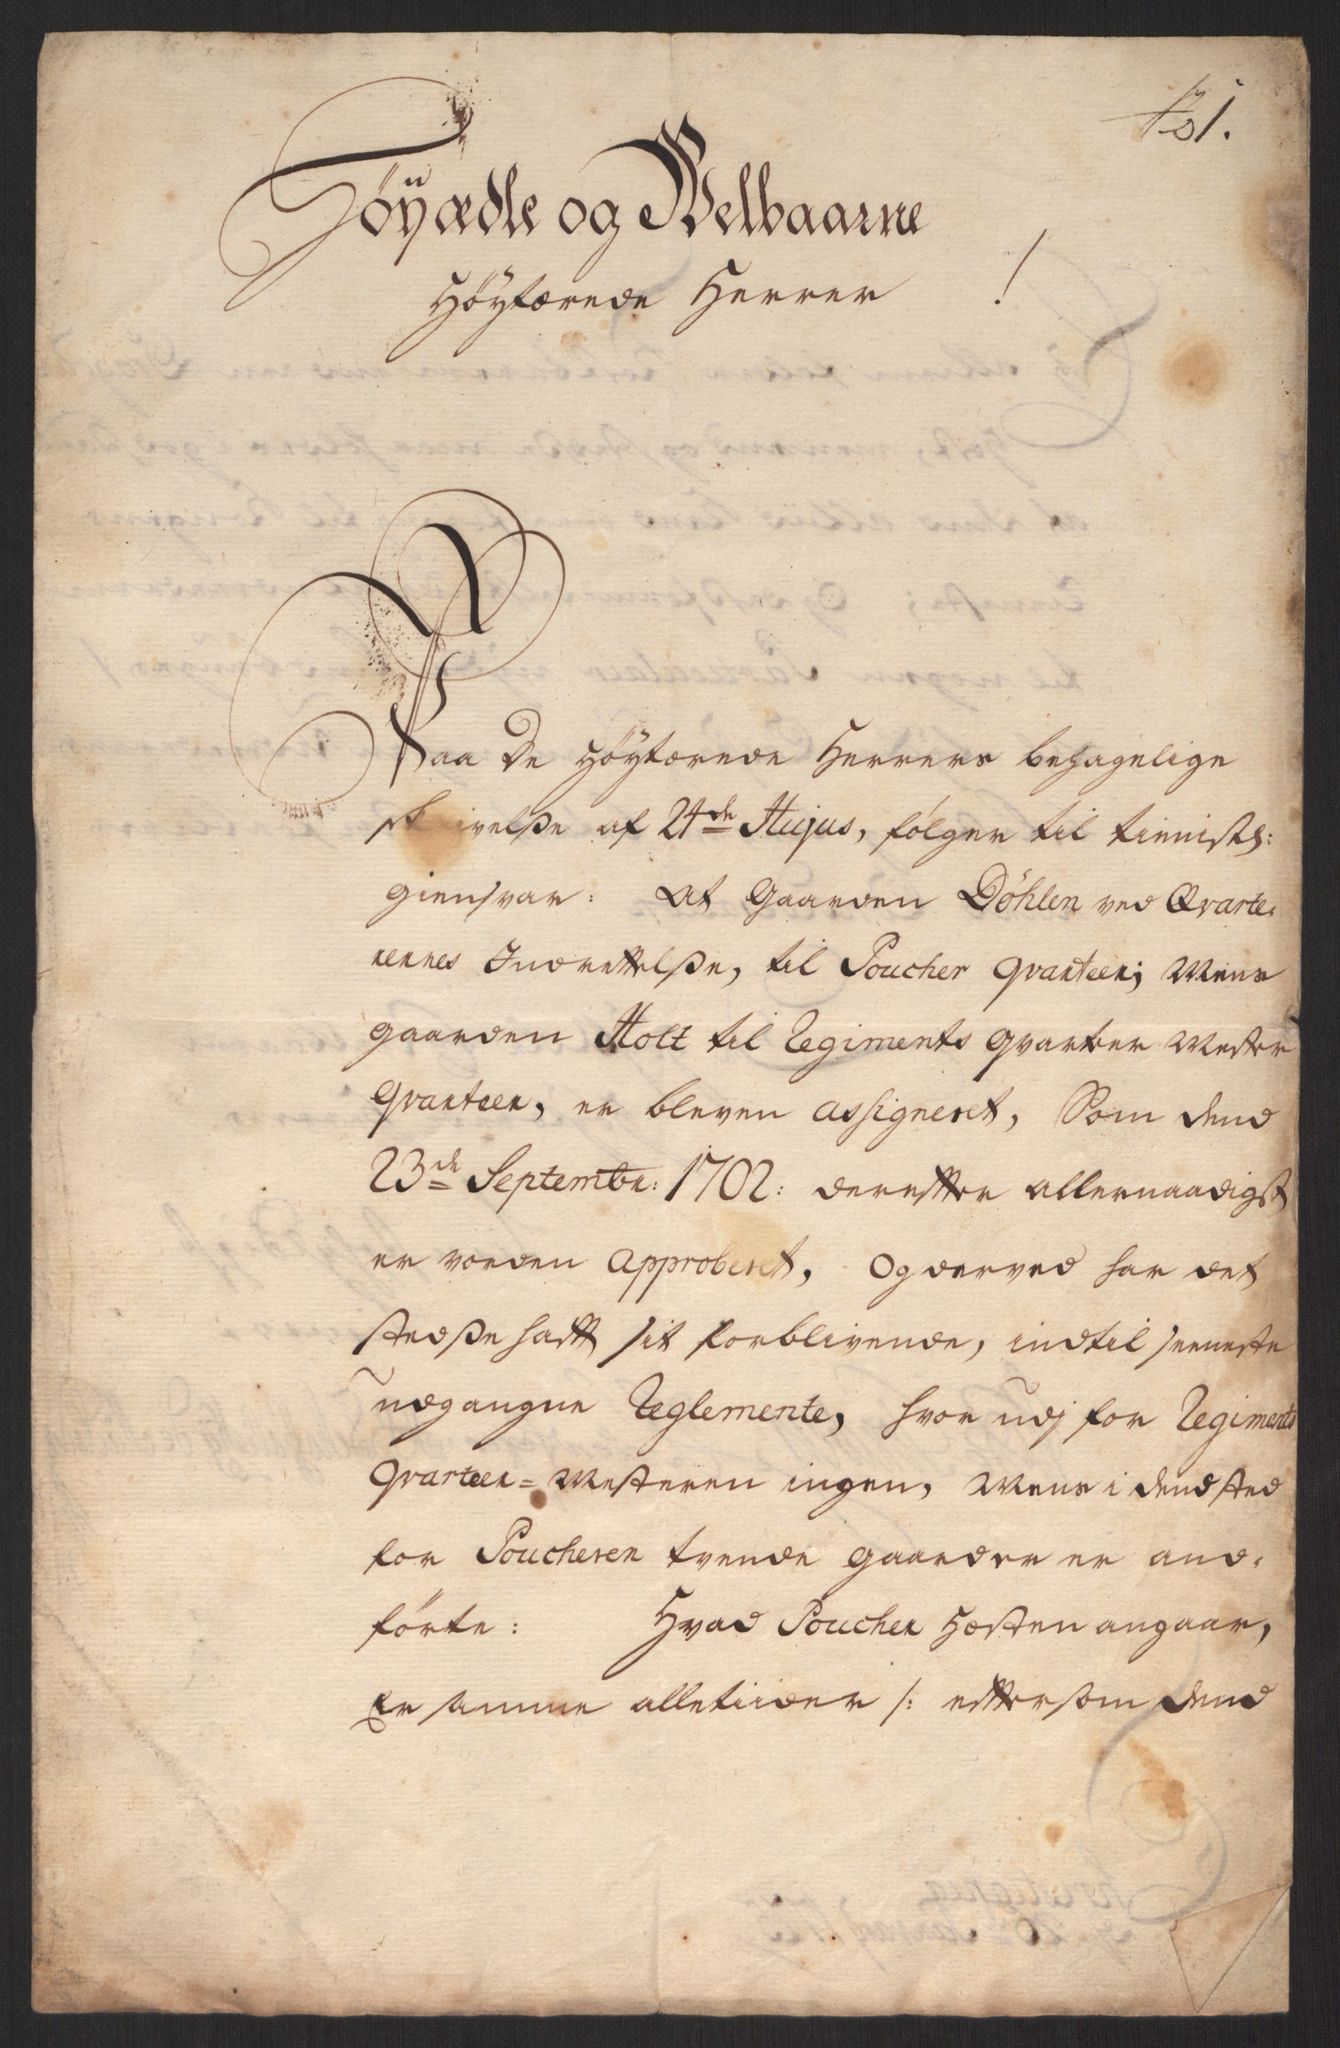 No 1.
Höÿædle og Welbaarne
Höÿtærede Herrer !
Paa De Höÿtærede Herrers behagelige
skrivelße af 24de Hujus, følger til tienistl:
giensvar: At Gaarden Döhlen ved Qvarte,
rernes Indrettelße, til Poucher Qvarteer; Mens
gaarden Holt til Regiments Qvarteer Mester
Qvarteer, er bleven assigneret, Som dend
23de Septembr: 1702: derefter allernaadigst
er vorden approberet, Og derved har det
stedße hafft sit forblivende, indtil seeneste
udgangne Reglemente, hvor udj for Regiments
Qvarteer= Mesteren ingen, Mens i dend sted
for Poucheren tvende gaarder er and,
förte: Hvad Poucher Hæsten angaar,
Er samme alletiider /: eftersom dend